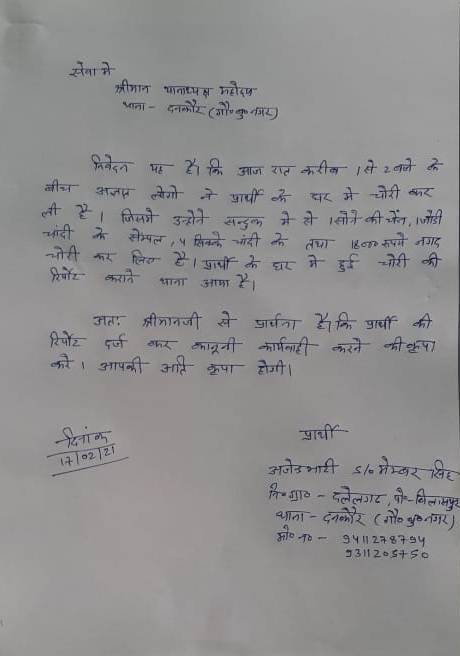 सेवा मे
श्रीमान थानाध्यक्ष महोदय
थाना - दनकौर (गौ०बु०नगर)
निवेदन यह है। कि आज रात करीब 1 से 2 बजे के
बीच अज्ञात लोगो ने प्रार्थी के घर मे चोरी कर
ली है। जिसमे उन्होने सन्दुक मे से 1 सोने की चैन, 1 जोडी
चांदी के सेम्पल, 4 सिक्के चांदी के तथा 18000 रुपये नगद
चोरी कर लिए है। प्रार्थी के घर मे हुई चोरी की
रिर्पोट कराने थाना आया है।
अतः श्रीमानजी से प्रार्थना है। कि प्रार्थी की
रिर्पोट दर्ज कर कानूनी कार्यवाही करने की कृपा
करे। आपकी अति कृपा होगी।
दिनांक
17/02/21
प्रार्थी
भाटी S/० सिंह
नि०ग्रा० - दलेलगढ, पो०-बिलासपुर
थाना - दनकौर (गौ०बु०नगर)
मो० न० - 9411278794
9311205750